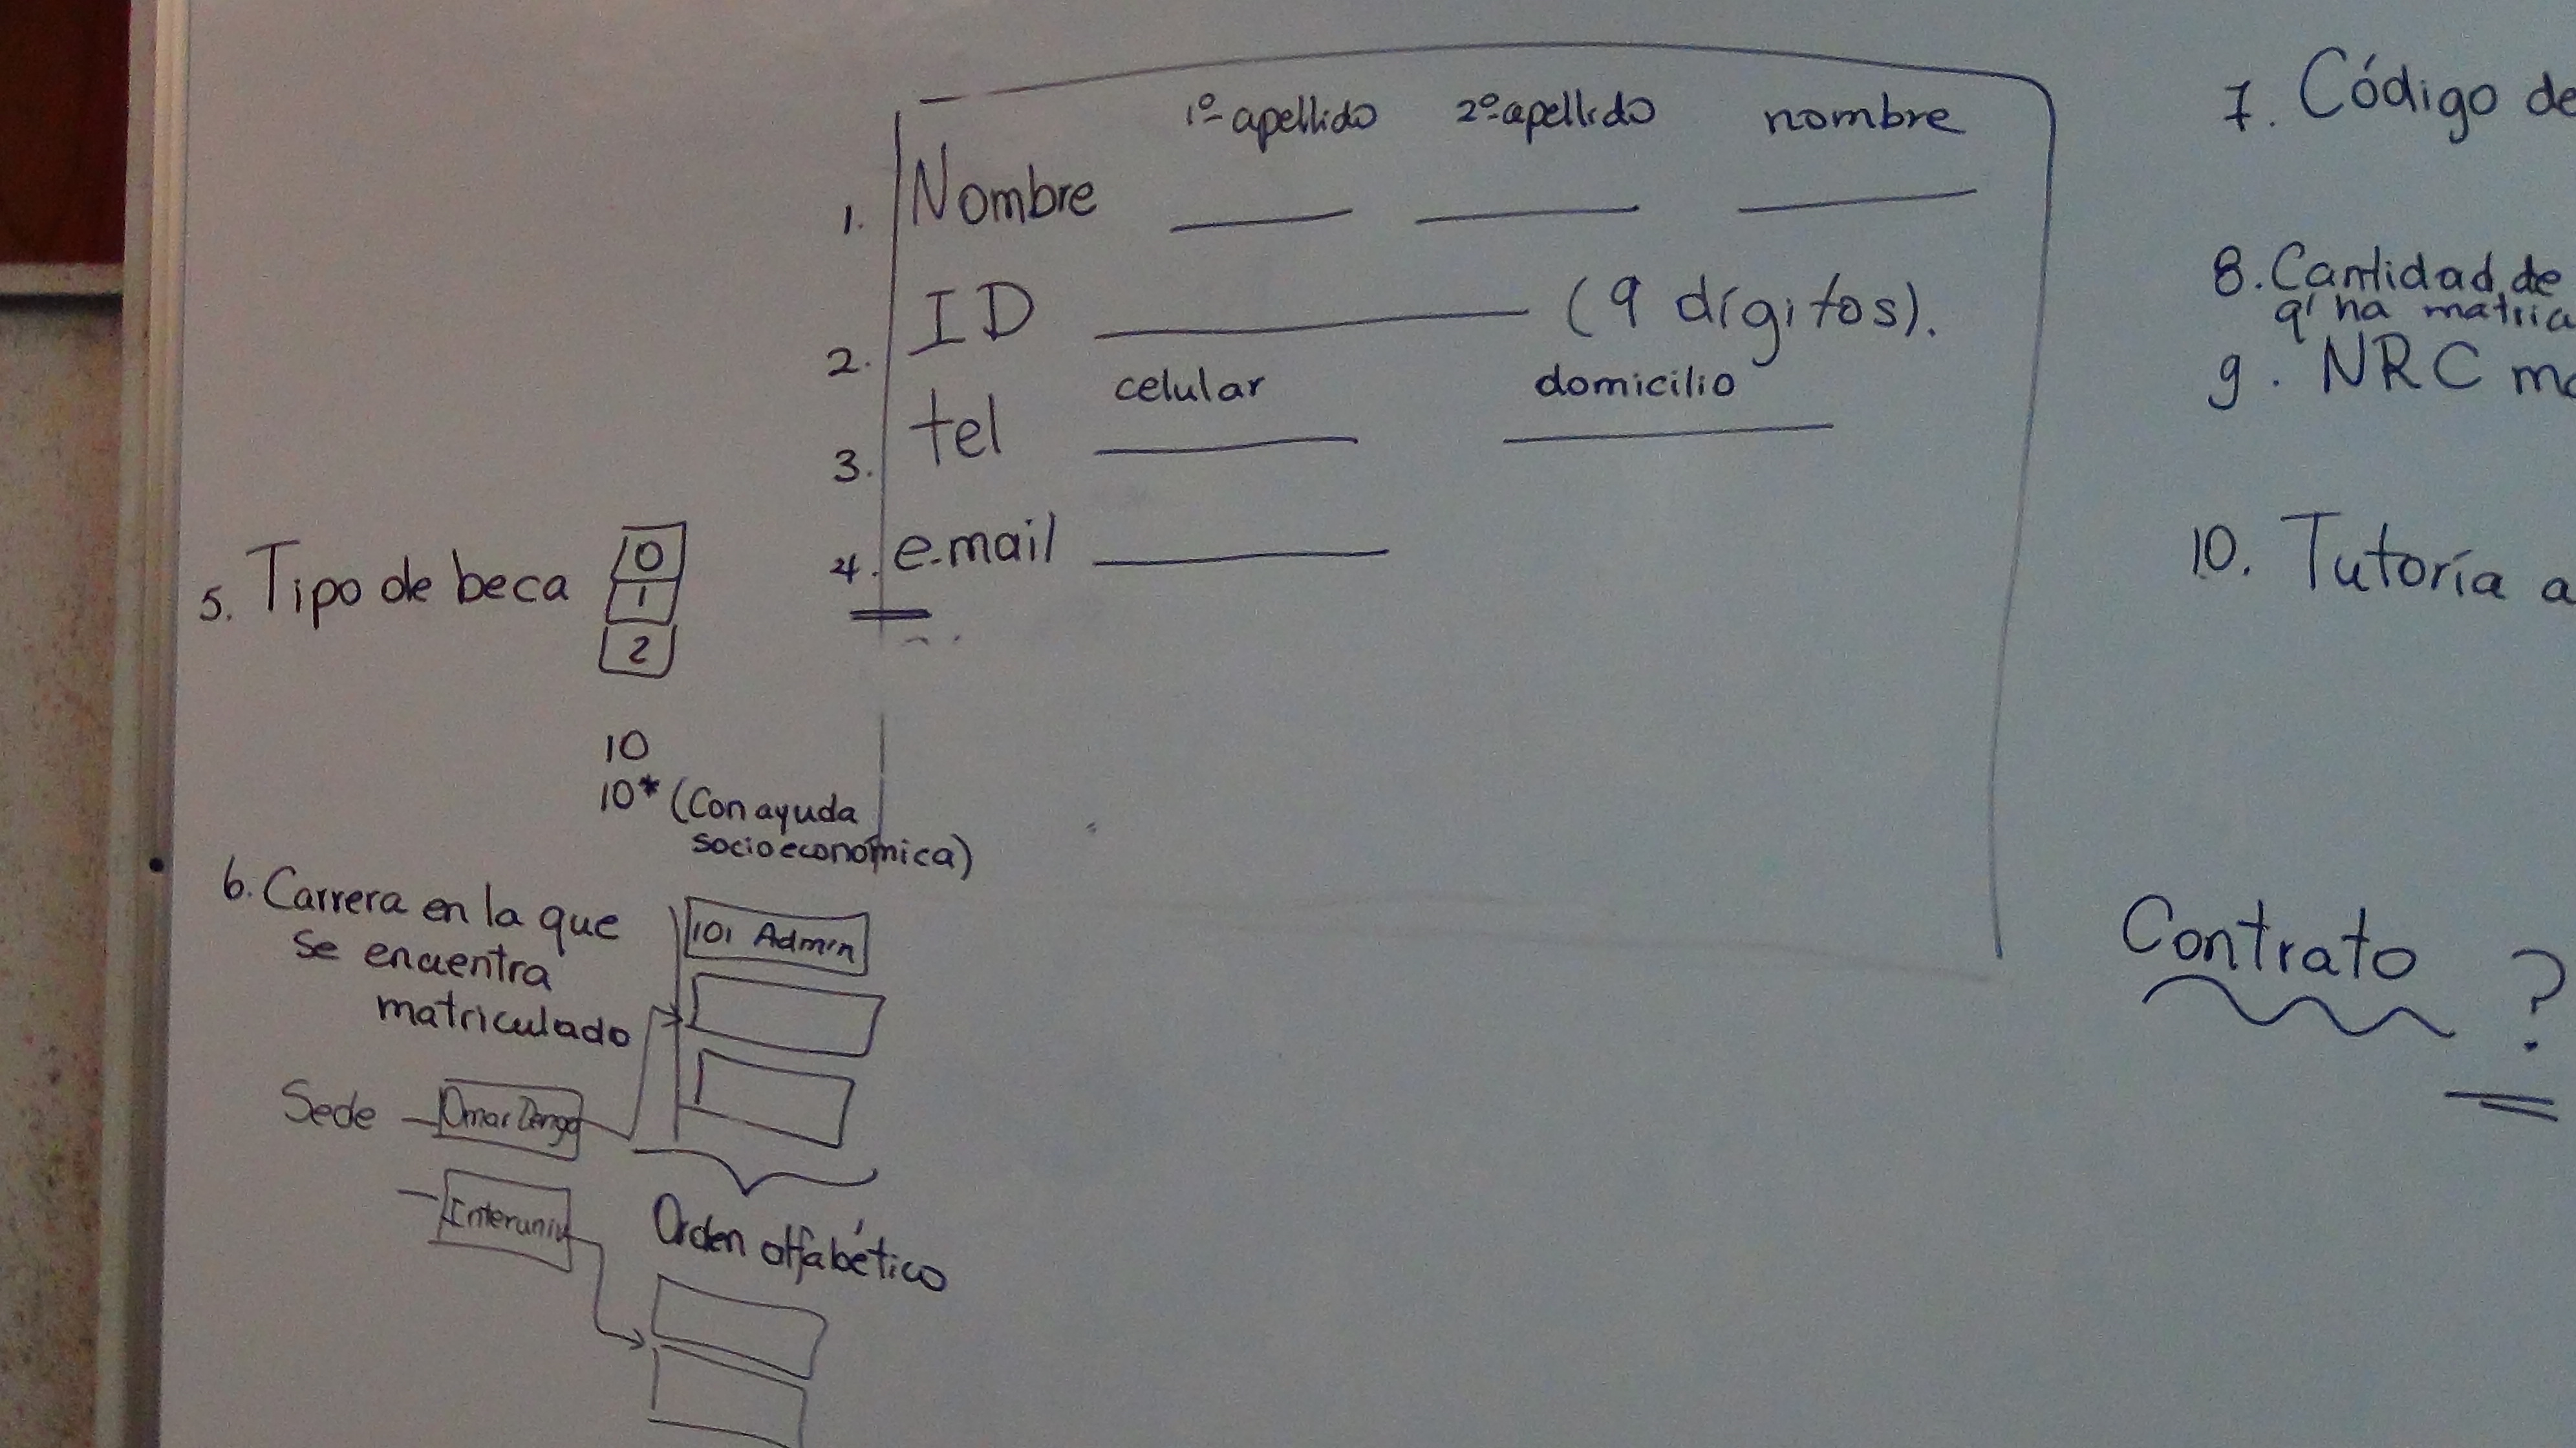 1º apellido 2º apellido nombre
1. Nombre
2. ID (9 dígitos).
celular domicilio
3. tel
4. e-mail
5. Tipo de beca
0
1
2
10
10* (Con ayuda
socioeconómica)
6. Carrera en la que
se encuentra
matriculado
101 Admin
Sede Omar Dengo
Interuniv
Orden alfabético
7. Código de
8. Cantidad de
q' ha matric
9. NRC ma
10. Tutoría a
Contrato ?